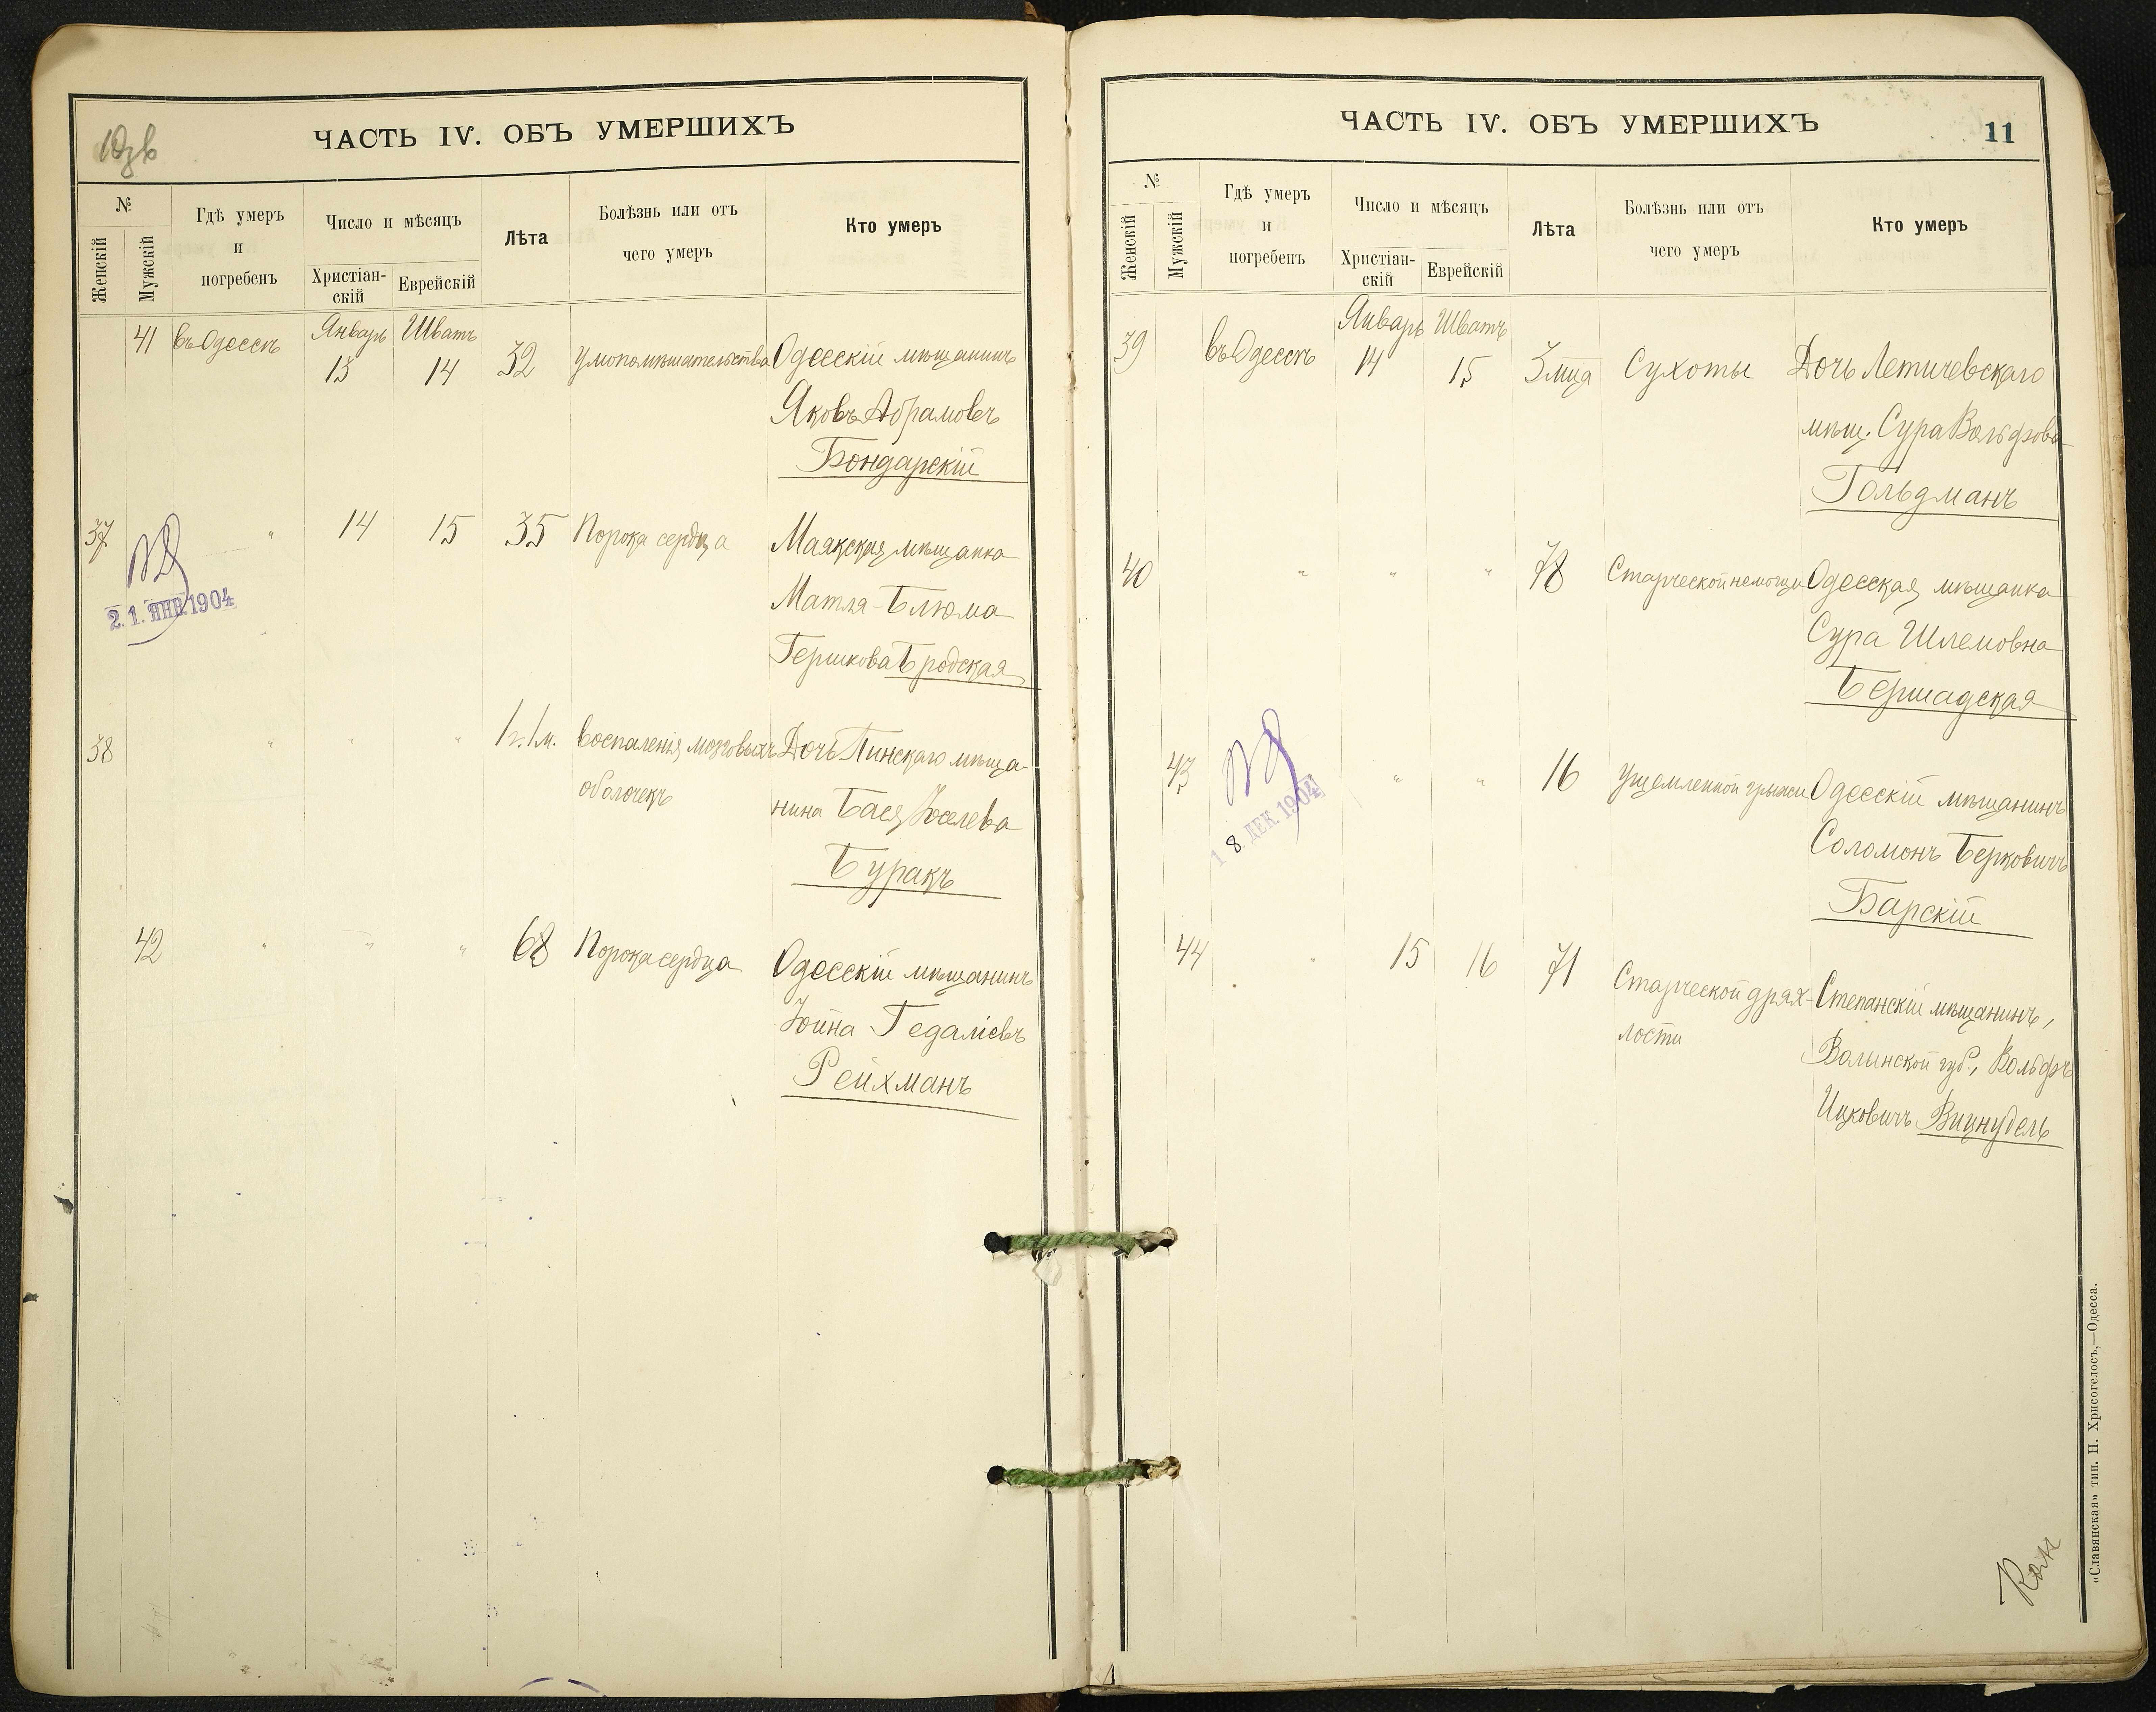 ЧАСТЬ IV. ОБЪ УМЕРШИХЪ
№
Женскій
Мужскій
Гдѣ умеръ
и
погребенъ
Число и мѣсяцъ
Христіан-
скій
Еврейскій
Лѣта
Болѣзнь или отъ
чего умеръ
Кто умеръ
41 въ Одессѣ Январь 13 Шватъ 14 32 умопомѣшательства Одесскій мѣщанинъ
Яковъ Абрамовъ
Бондарскій
37 " 14 15 35 Порока сердца Маякская мѣщанка
Матля-Блюма
Гершкова Бродская
2.1. ЯНВ. 1904
38 " " " 1 г. 1 м. воспаленія мозговыхъ Дочь Пинскаго мѣща-
оболочекъ нина Бася Іоселева
Буракъ
42 " " " 68 Порока сердца Одесскій мѣщанинъ
Іойна Гедаліевъ
Рейхманъ
ЧАСТЬ IV. ОБЪ УМЕРШИХЪ
11
№
Женскій
Мужскій
Гдѣ умеръ
и
погребенъ
Число и мѣсяцъ
Христіан-
скій
Еврейскій
Лѣта
Болѣзнь или отъ
чего умеръ
Кто умеръ
39 въ Одессѣ Январь 14 Шватъ 15 3 мца Сухоты Дочь Летичевскаго
мѣщ. Сура Вольфова
Гольдманъ
40 " " " 78 Старческой немощи Одесская мѣщанка
Сура Шлемовна
Бершадская
43 " " 16 ущемленной грыжи Одесскій мѣщанинъ
Соломонъ Берковичъ
Барскій
18 ДЕК. 1904
44 " 15 16 71 Старческой дрях- Степанскій мѣщанинъ,
лости Волынской губ., Вольфъ
Ицковичъ Вицнудель
«Славянская» тип. Н. Хрисогелосъ,—Одесса.